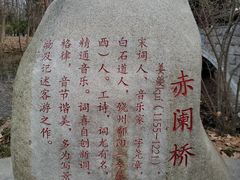 赤阑桥
姜夔kui（1155-1221），
宋词人，音乐家。字尧章，
白石道人，饶州鄱阳（今江
西）人。工诗，词尤有名，
精通音乐。词喜自创新调，
格律，音节谐美，多为写景
勋及记述客游之作。